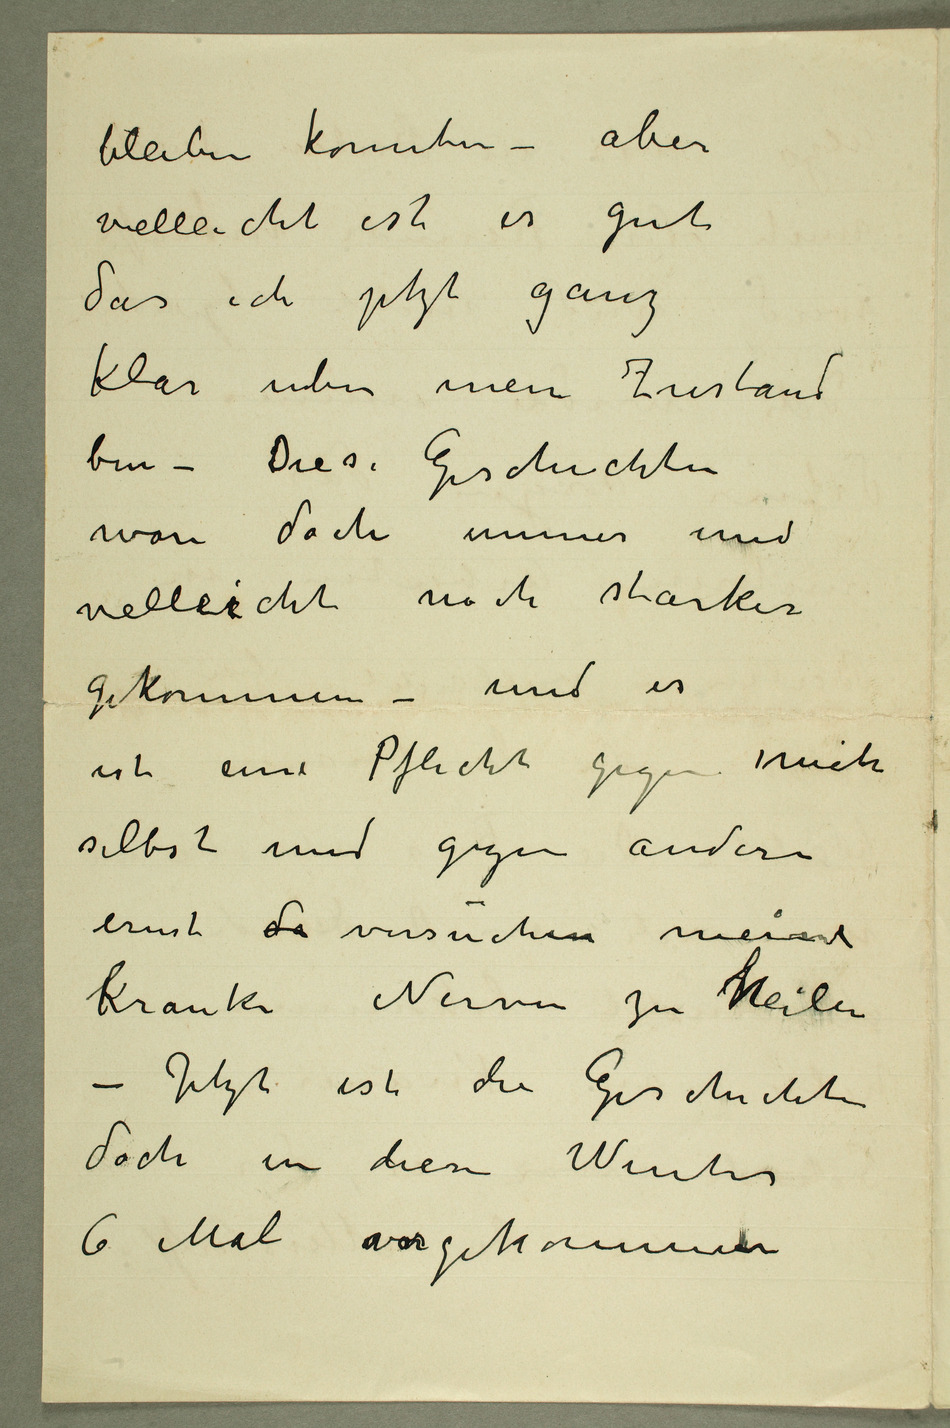 bleiben konnten – aber
vielleicht ist es gut
das ich jetzt ganz
klar uber mein Zustand
bin – Diese Geschichten
waren doch immer und
velleicht noch starker
gekommen – und es
ist eine Pflicht gegen mich
selbst und gegen andere
ernst da versuchen meine
kranke Nerven zu heilen
– Jetzt ist die Geschichten
doch in diesen Winter
6 Mal vorgekommen